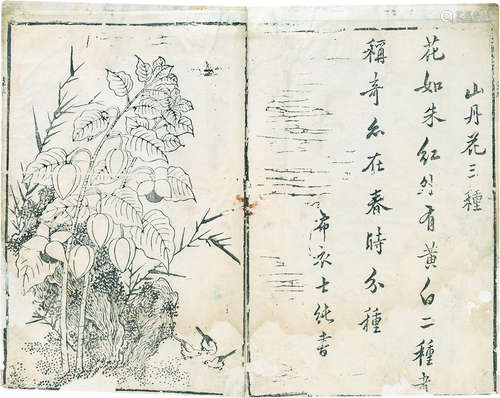 山丹花三種
花如朱紅外有黃白二種者
稱奇亦在春時分種
布衣士純書